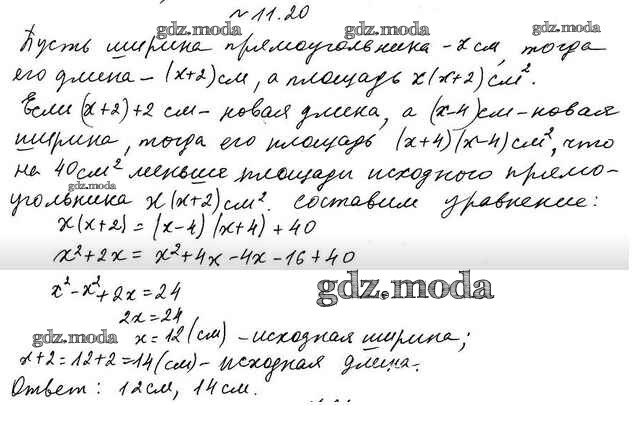 № 11.20
gdz.moda gdz.moda gdz.moda
Пусть ширина прямоугольника - x см, тогда
его длина - (x+2) см, а площадь x(x+2) см².
Если (x+2)+2 см - новая длина, а (x-4) см - новая
ширина, тогда его площадь (x+4)(x-4) см², что
на 40 см² меньше площади исходного прямо-
gdz.moda
угольника x(x+2) см². составим уравнение:
x(x+2) = (x-4)(x+4) + 40
x²+2x = x²+4x-4x-16+40
x²-x²+2x=24
gdz.moda
2x=24
gdz.moda
x=12 (см) - исходная ширина;
gdz.moda
x+2=12+2=14 (см) - исходная длина.
Ответ: 12см, 14 см.